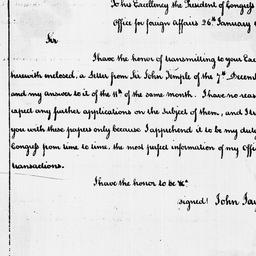 To his Excellency the President of Congress
Office for foreign Affairs 26th January
Sir
I have the honor of transmitting to your Exce
herewith enclosed, a Letter from Sir John Temple of the 7th Decem
and my answer to it of the 11th of the same month. I have no reas
expect any further applications on the Subject of them, and I tr
you with these papers only because I apprehend it to be my duty
Congress from time to time, the most perfect information of my Offi
transactions.
I have the honor to be &c.
signed: John Jay